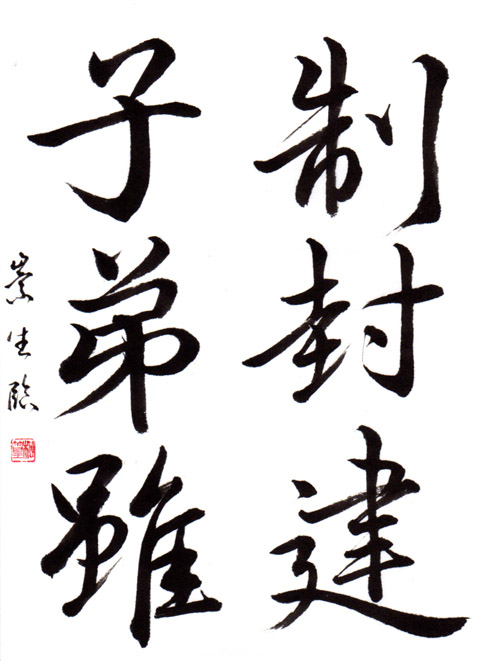 制封建
子弟雖
崇生臨